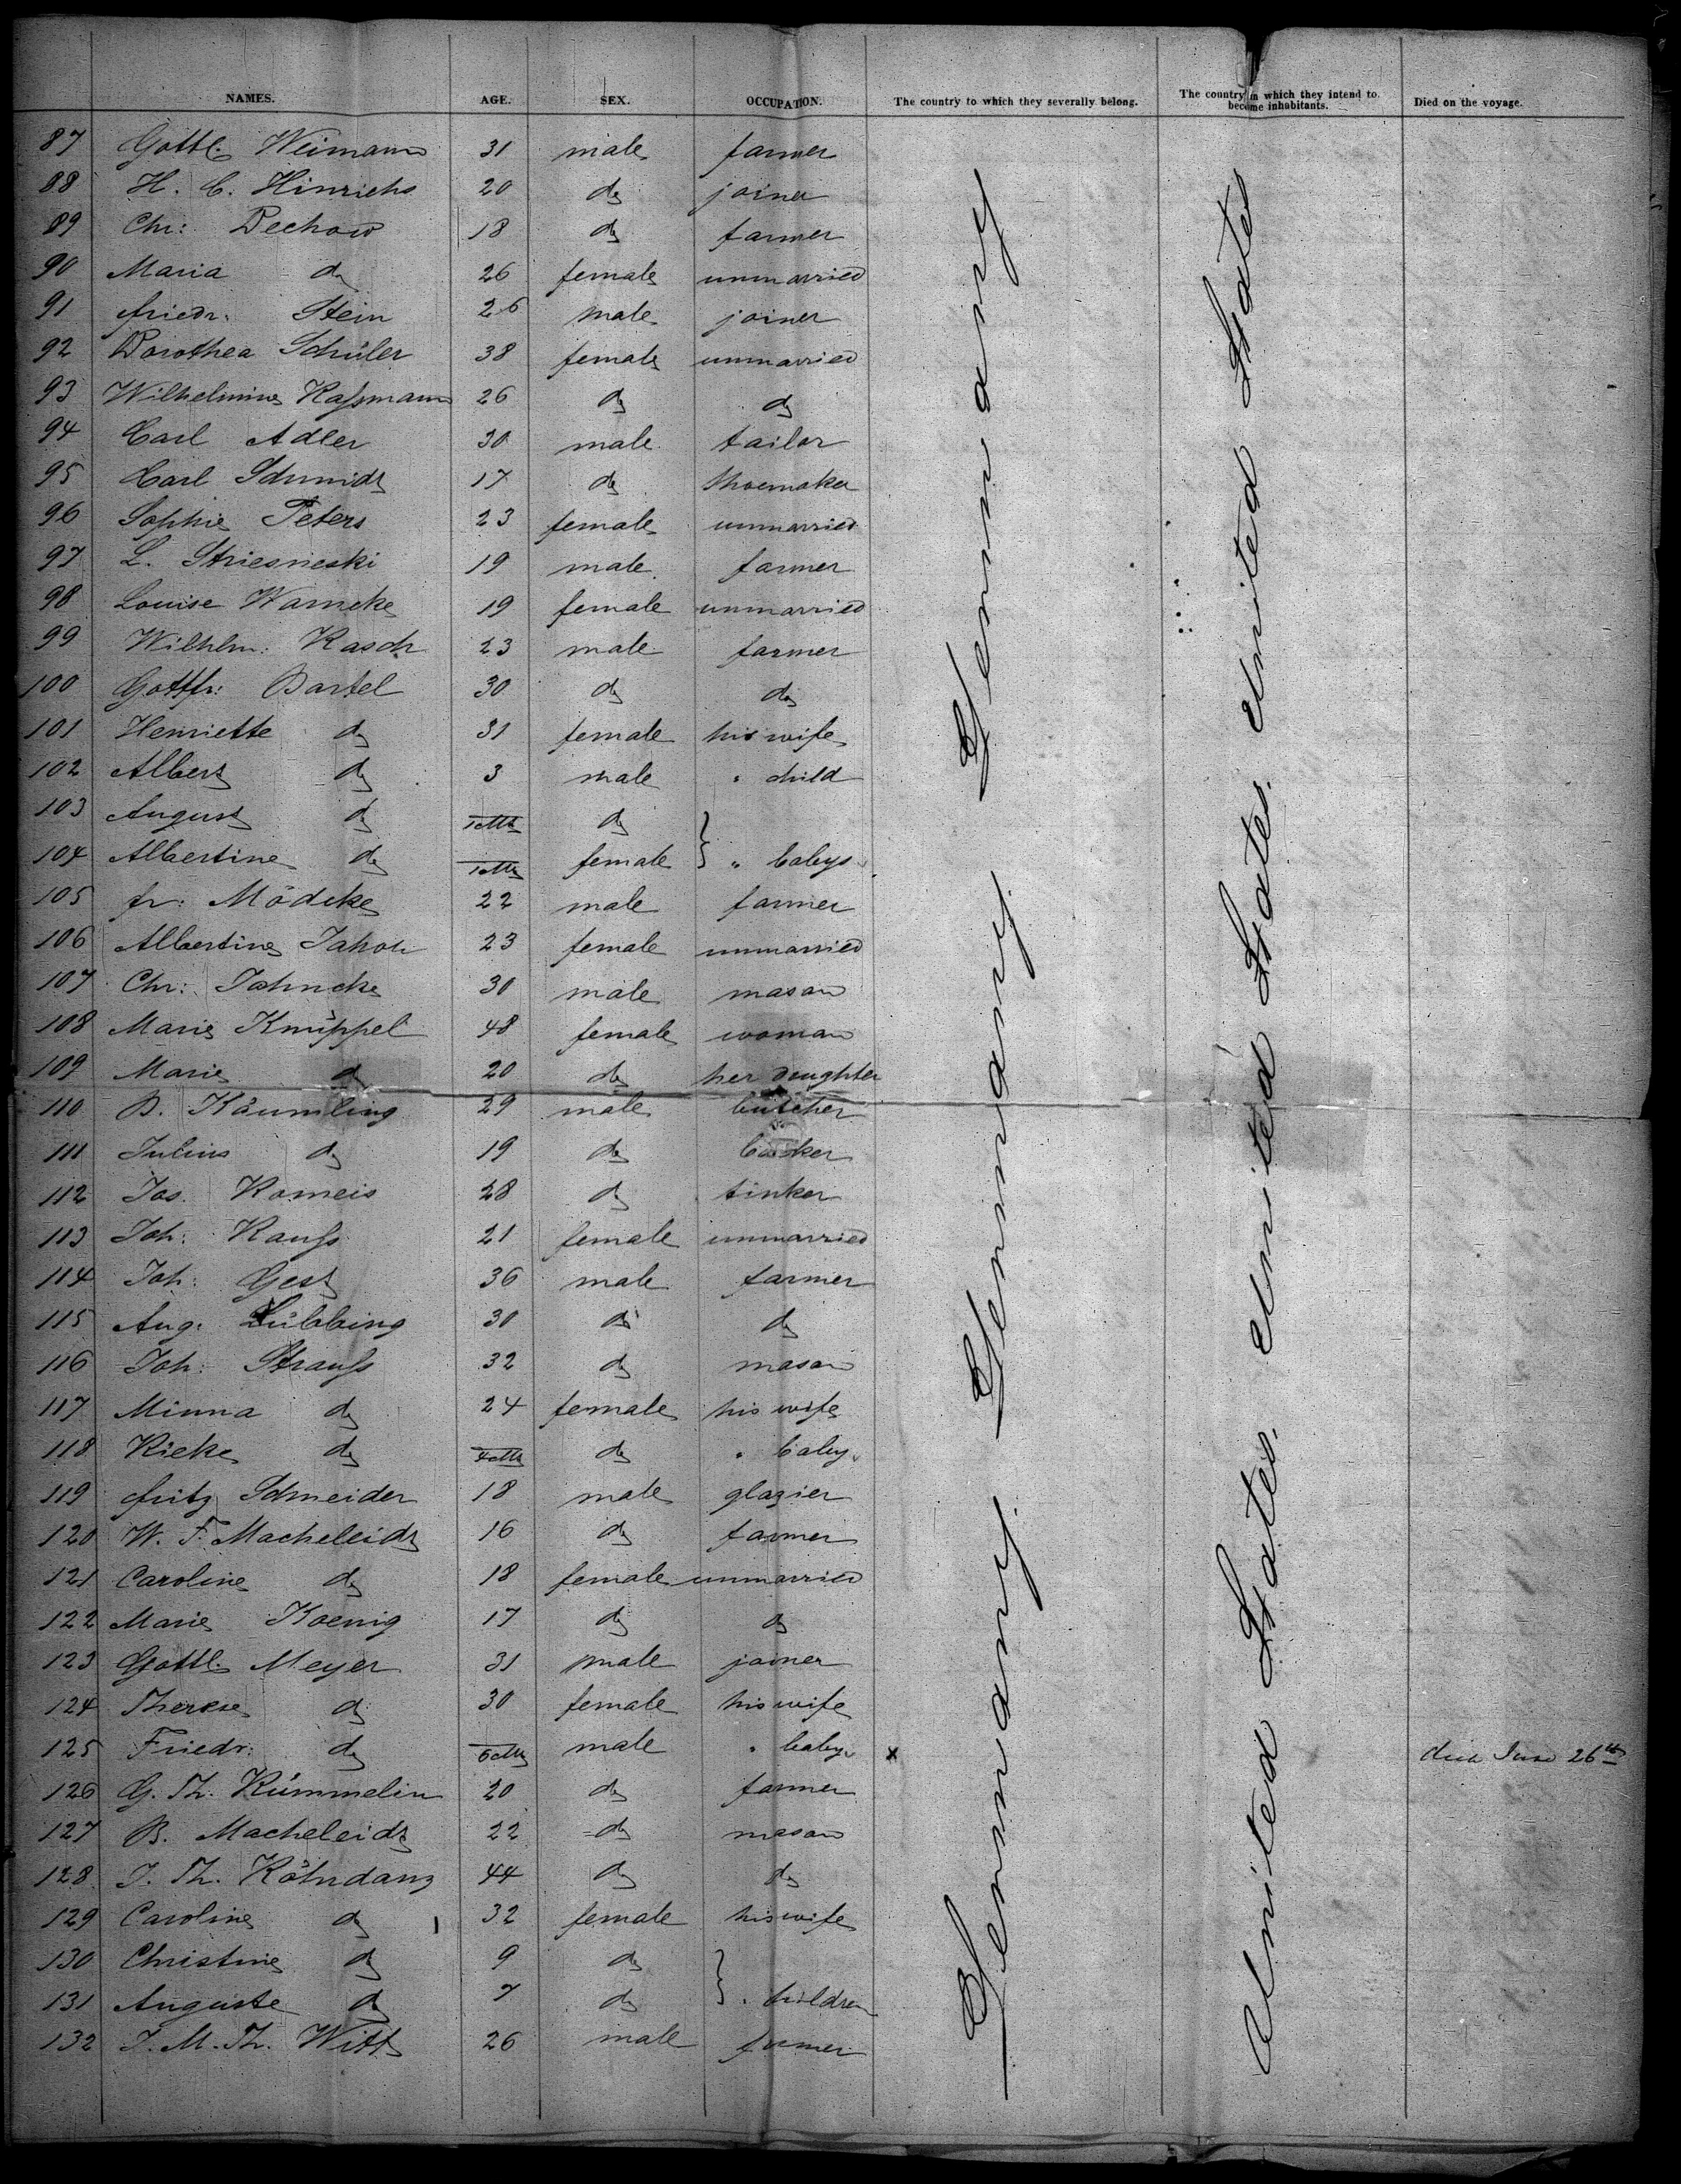 NAMES. AGE. SEX. OCCUPATION. The country to which they severally belong. The country in which they intend to become inhabitants. Died on the voyage.
87 Gottl. Weimann 31 male farmer
88 H. C. Hinrichs 20 do joiner
89 Chr: Dechow 18 do farmer
90 Maria do 26 female unmarried
91 Friedr. Stein 26 male joiner
92 Dorothea Schüler 38 female unmarried
93 Wilhelmine Kaßmann 26 do do
94 Carl Adler 30 male tailor
95 Carl Schmidt 17 do shoemaker
96 Sophie Peters 23 female unmarried
97 L. Striesneski 19 male farmer
98 Louise Warncke 19 female unmarried
99 Wilhlm: Rasch 23 male farmer
100 Gottfr: Bartel 30 do do
101 Henriette do 31 female his wife
102 Albert do 3 male " child
103 August do 1 Mth do
104 Albertine do 1 Mth female } " babys
105 fr: Mödcke 22 male farmer
106 Albertine Jahoh 23 female unmarried
107 Chr: Jahncke 30 male mason
108 Marie Knüppel 48 female woman
109 Marie do 20 do her daughter
110 B. Käumling 29 male butcher
111 Julius do 19 do baker
112 Jos. Romeis 28 do tinker
113 Joh: Rauß 21 female unmarried
114 Joh: Gest 36 male farmer
115 Aug: Lübbing 30 do do
116 Joh: Strauß 32 do mason
117 Minna do 24 female his wife
118 Rieke do 4 Mth do " baby
119 Fritz Schneider 18 male glazier
120 W. F. Macheleidt 16 do farmer
121 Caroline do 18 female unmarried
122 Marie Koenig 17 do do
123 Gottl. Meyer 31 male joiner
124 Therese do 30 female his wife
125 Friedr: do 6 Mth male " baby x died June 26th
126 G. Th. Kümmelin 20 do farmer
127 B. Macheleidt 22 do mason
128 J. Th. Köhndanz 44 do do
129 Caroline do 32 female his wife
130 Christine do 9 do
131 Auguste do 7 do } " children
132 J. M. Th. Witt 26 male farmer
Germany. Germany. Germany. Germany
United States. United States. United States. United States